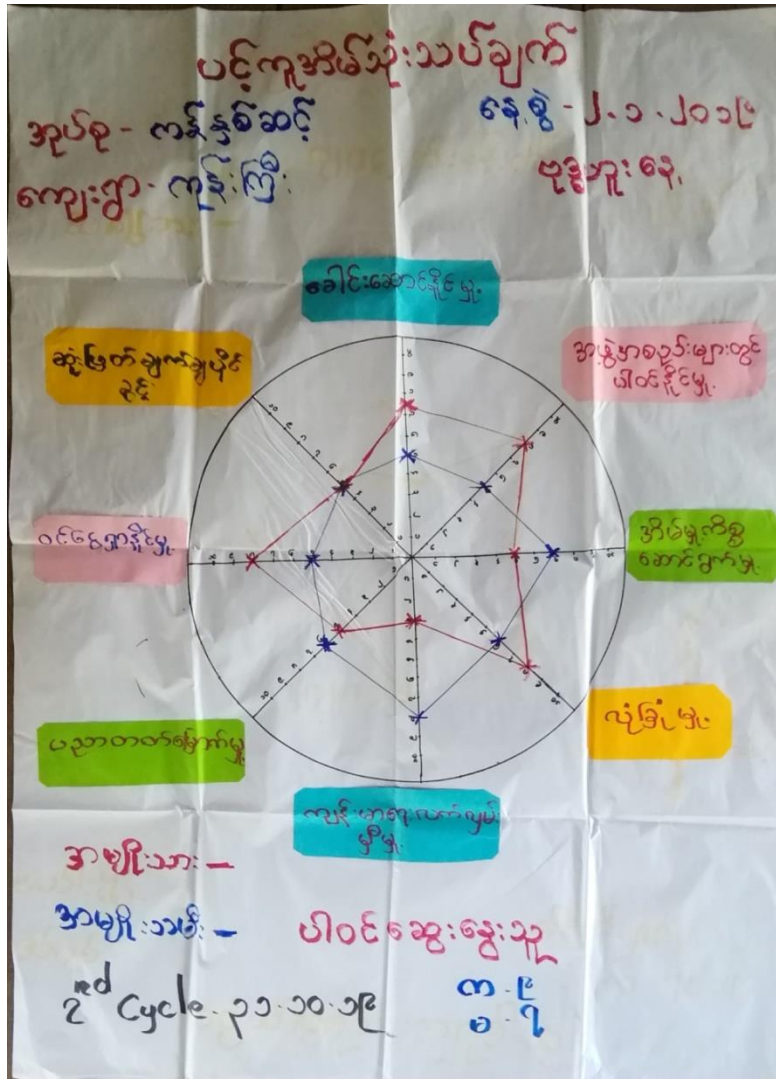 ပင့်ကူအိမ်သုံးသပ်ချက်
အုပ်စု - ကန်နှစ်ဆင့်
နေ့စွဲ - ၂.၁.၂၀၁၉
ကျေးရွာ - ကုန်းကြီး
ဗုဒ္ဓဟူးနေ့
ခေါင်းဆောင်နိုင်မှု
ဆုံးဖြတ်ချက်ချပိုင်
ခွင့်
အဖွဲ့အစည်းများတွင်
ပါဝင်နိုင်မှု
ဝင်ငွေရှာနိုင်မှု
အိမ်မှုကိစ္စ
ဆောင်ရွက်မှု
ပညာတတ်မြောက်မှု
လုံခြုံမှု
ကျန်းမာရေးလက်လှမ်း
မှီမှု
အမျိုးသား -
အမျိုးသမီး -
ပါဝင်ဆွေးနွေးသူ
2nd Cycle - ၃၁.၁၀.၁၉
က - ၉
မ - ၇